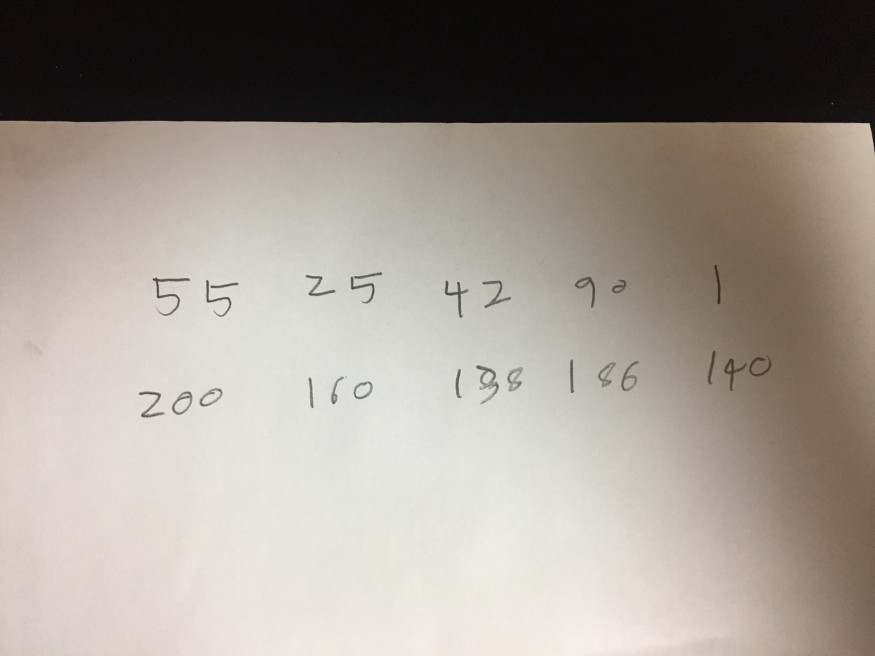 55 25 42 90 1
200 160 186 140